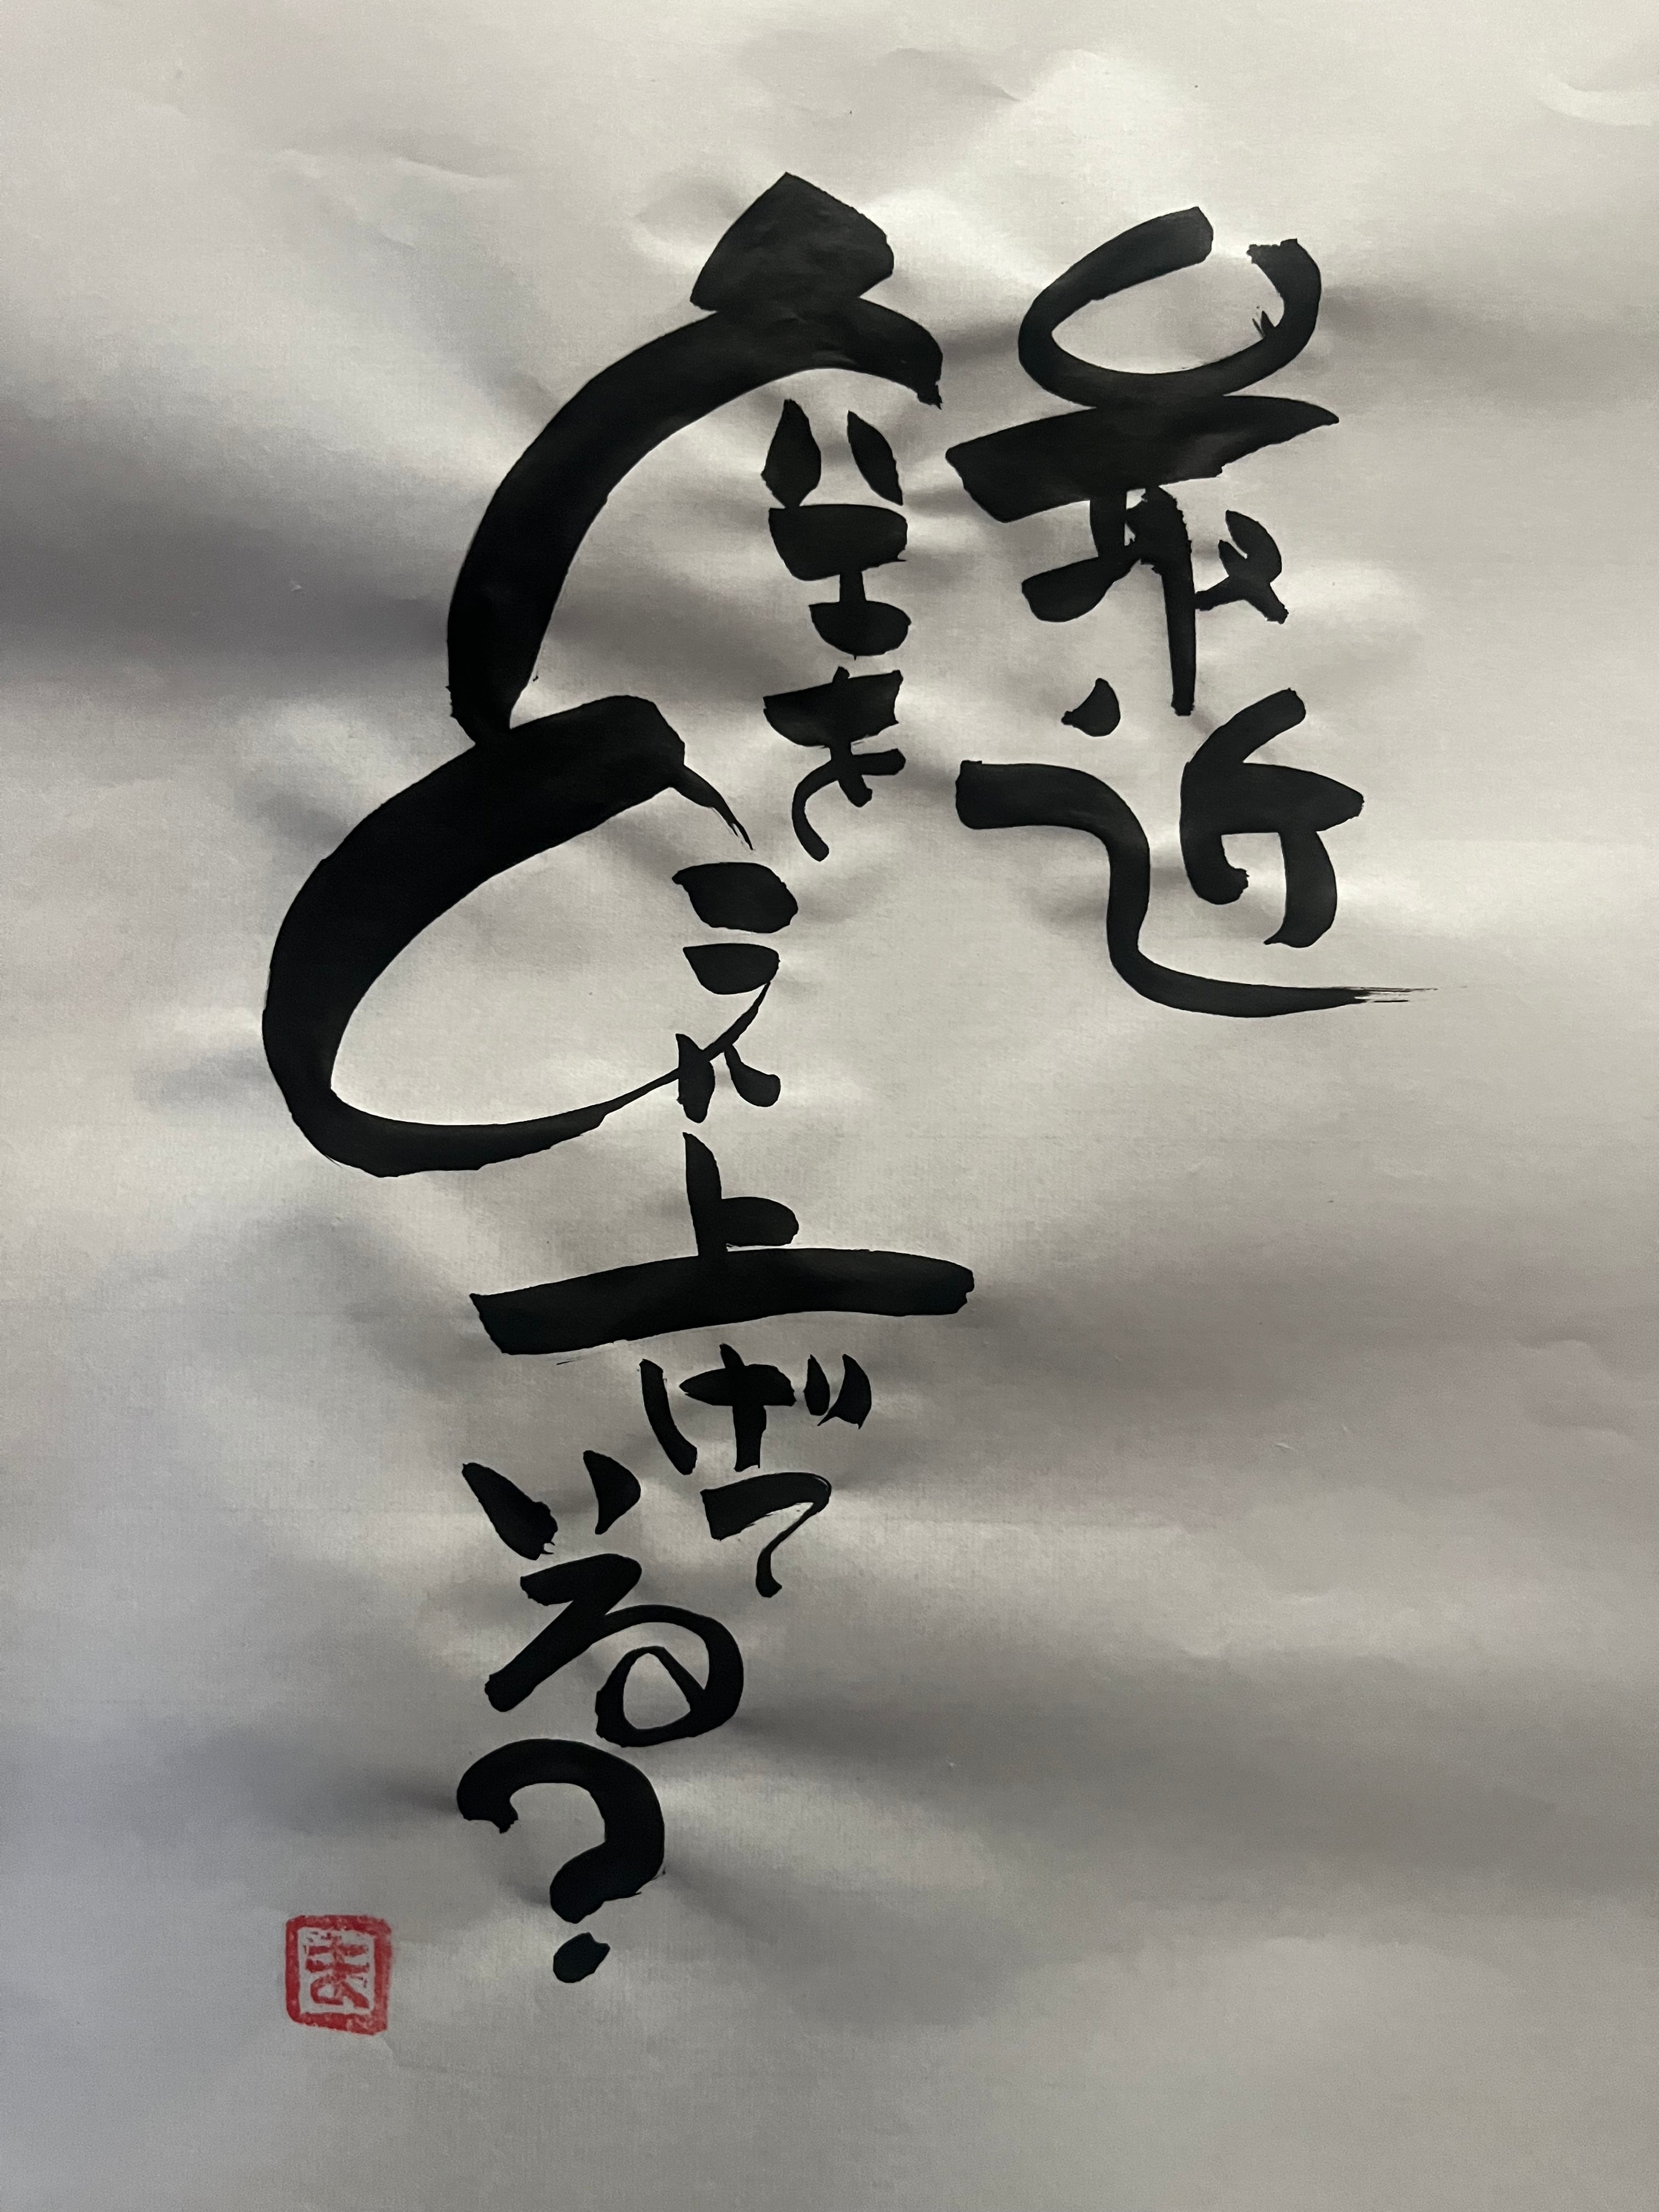 最近
空を見上げている?